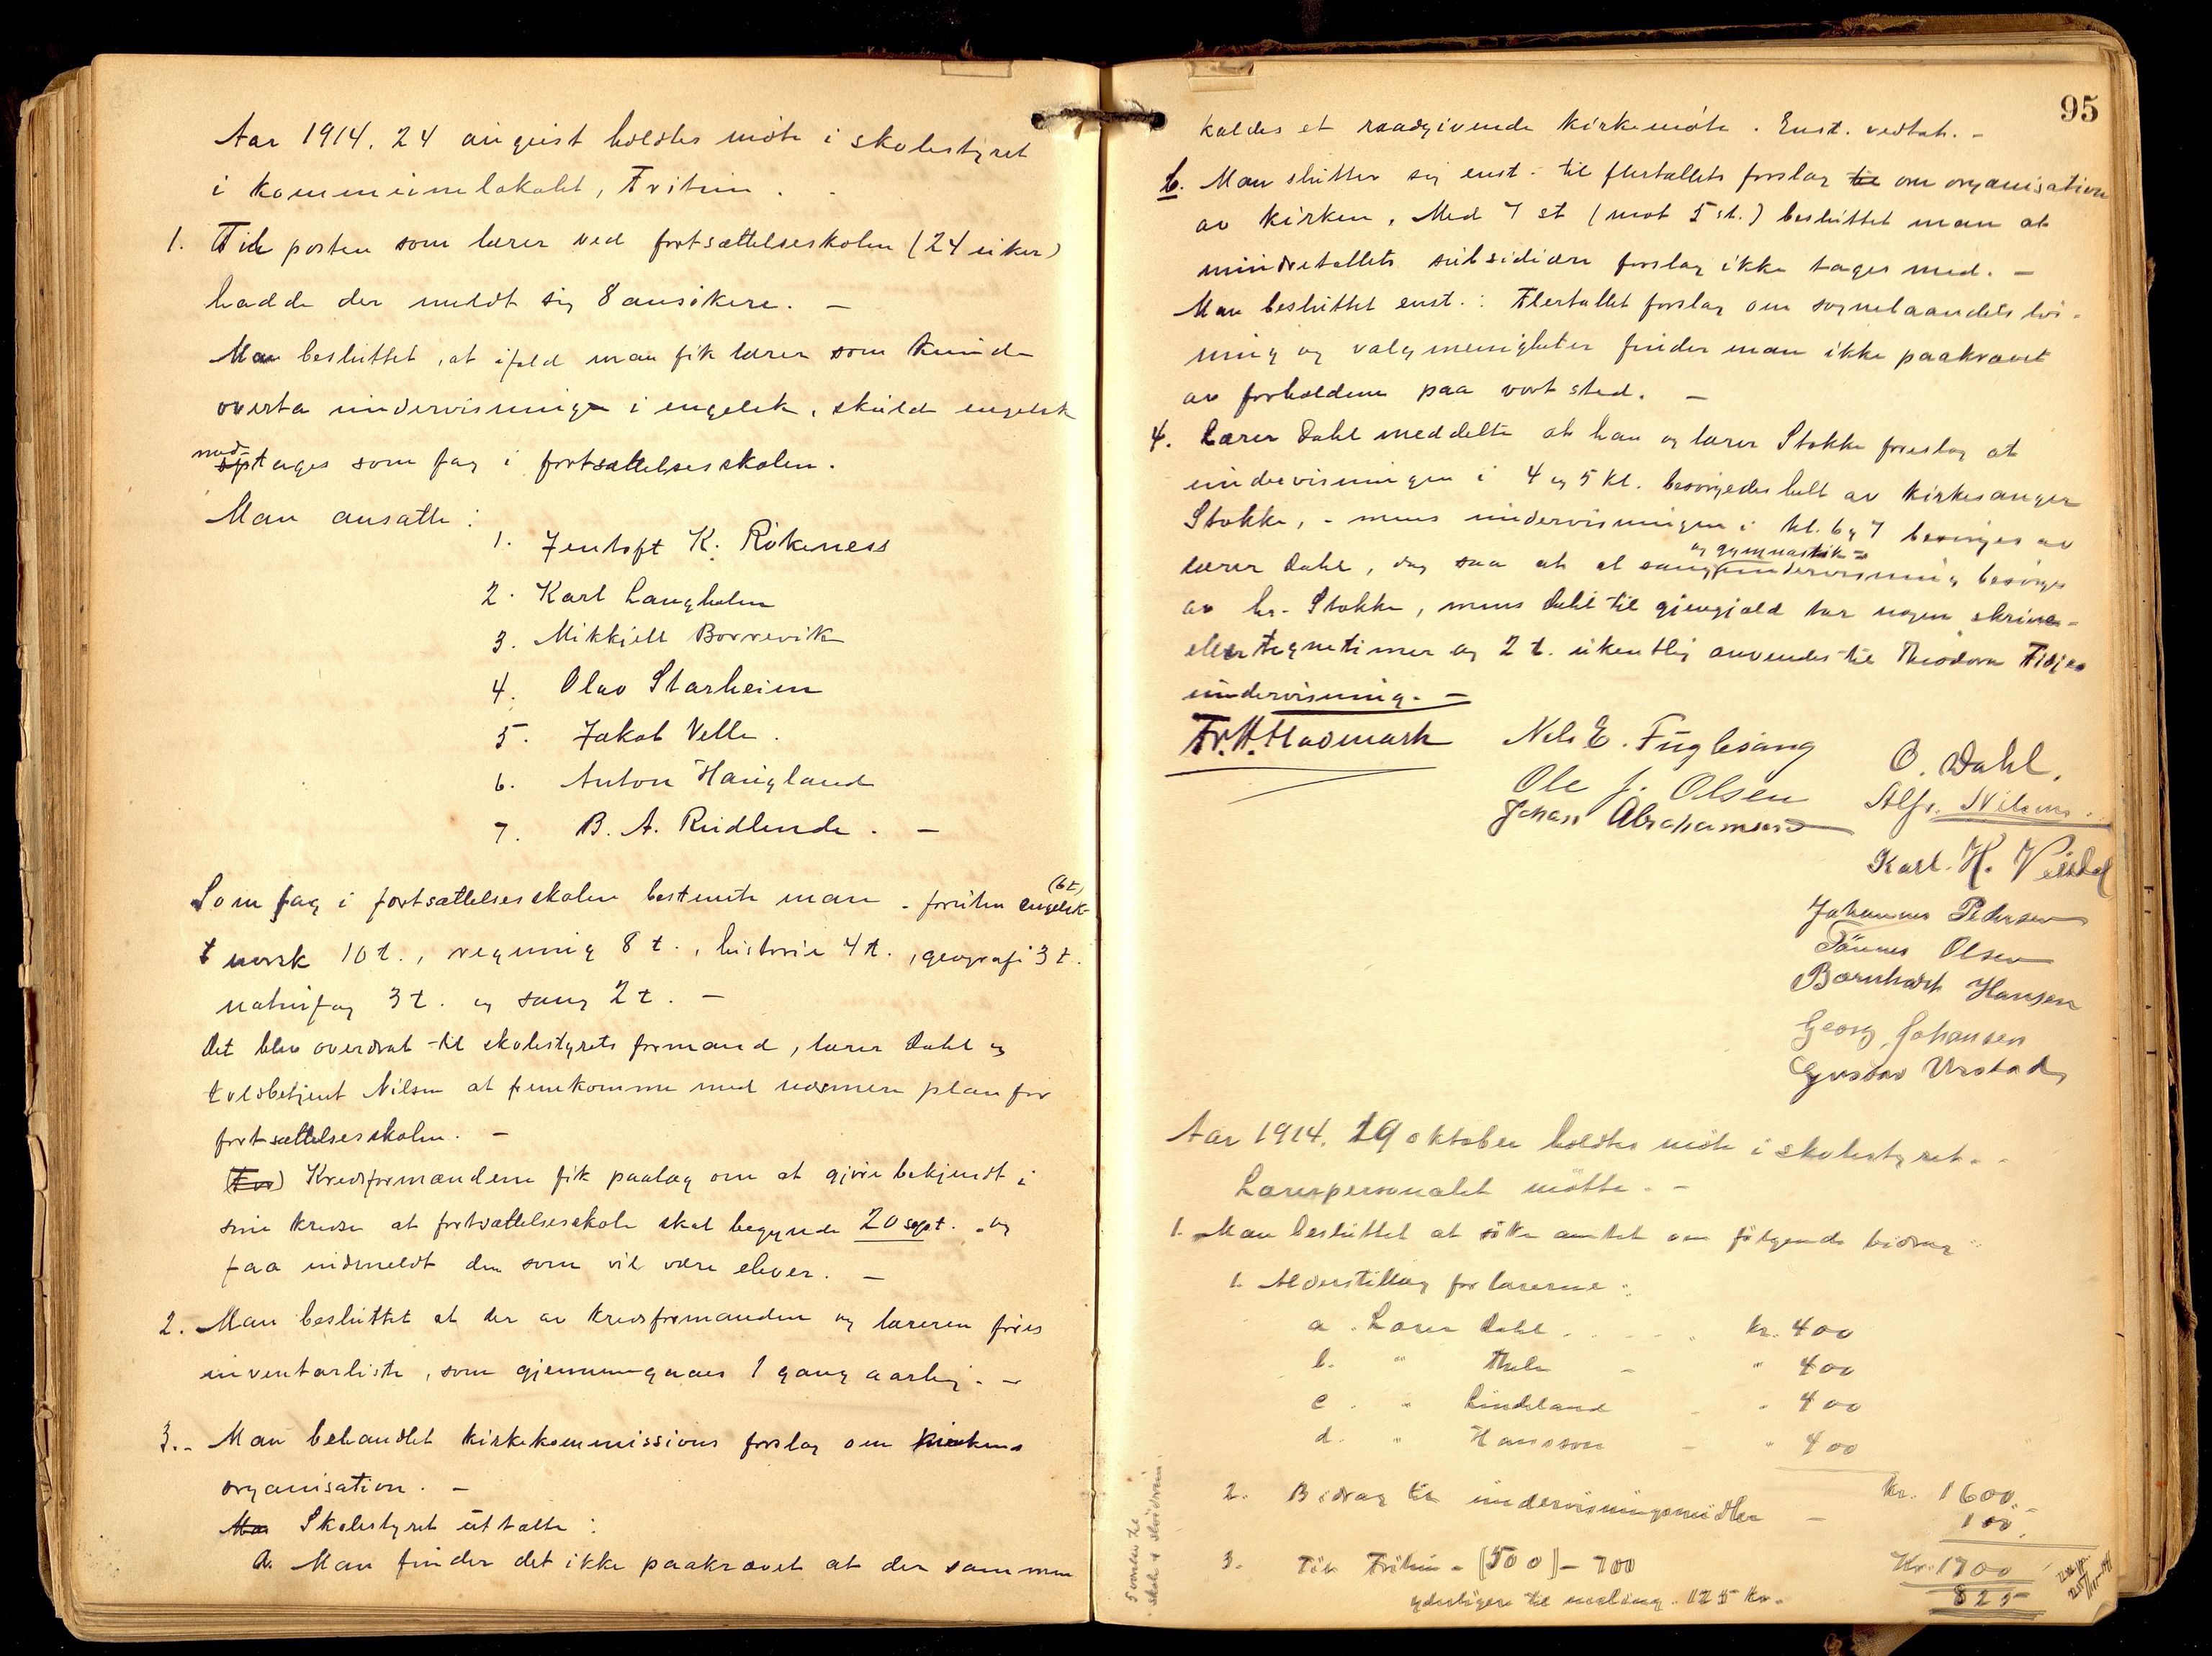 Aar 1914. 24 august holdtes möte i skolestyret
i kommunelokalet, Fritun.
1. Til posten som lærer ved fortsættelseskolen (24 uker)
hadde der meldt sig 8 ansökere. —
Man besluttet, at ifald man fik lærer som kunde
overta undervisninge i engelsk, skulde engelsk
med
optages som fag i fortsættelsesskolen.
Man ansatte:
1. Jentoft K. Rökeness
2. Karl Langholm
3. Mikkjell Borrevik
4. Olav Starheim
5. Jakob Velle.
6. Anton Haugland
7. B. A. Rudlende. —
(6t)
Som fag i fortsættelsesskolen bestemte man - foruten engelsk
norsk 10 t., regning 8 t., historie 4 t., geografi 3 t.
naturfag 3 t. og sang 2 t. —
Det blev overdrat til skolestyrets formand, lærer Dahl og
toldbetjent Nilsen at fremkomme med nærmere plan for
fortsættelsesskolen. —
(For) Kredsformændene fik paalæg om at gjöre bekjendt i
sine kredse at fortsættelsesskole skal begynde 20 sept. og
faa indmeldt dem som vil være elever. —
2. Man besluttet at der av kredsformanden og læreren föres
inventarliste, som gjennemgaaes 1 gang aarlig. —
3. - Man behandlet kirkekommissions forslag om kirkens
organisation. —
Man Skolestyret uttalte:
a. Man finder det ikke paakrævet at der sammen
95
kaldes et raadgivende kirkemöte. Enst. vedtat. -
b. Man slutter sig enst. til flertallets forslag til om organisation
av kirken. Med 7 st (mot 5 st.) besluttet man at
mindretallets subsidiære forslag ikke tages med. —
Man besluttet enst.: Flertallet forslag om sognebaandets lös-
ning og valgmenigheter finder man ikke paakrævet
av forholdene paa vort sted. —
4. Lærer Dahl meddelte at han og lærer Stokke foreslog at
undervisningen i 4 og 5 kl. besörgedes helt av kirkesanger
Stokke, - mens undervisningen i kl. 6 og 7 besörges av
og gymnastik-
lærer Dahl, dog saa at al sangundervisning besörges
av hr. Stokke, mens Dahl til gjengjæld tar nogen skrive-
eller tegnetimer og 2 t. ukentlig anvendes til Theodora Fidjes
undervisning. —
Fr. H. Hadmark
Nels E. Fuglesang
O. Dahl.
Ole J. Olsen
Alfr. Nilsen.
Johan Abrahamsen
Karl. H. Veistad
Johannes Pedersen
Tönnes Olsen
Bernhart Hansen
Georg Johansen
Gustav Urstad
Aar 1914. 19 oktober holdtes möte i skolestyret. -
Lærerpersonalet mötte. -
1. Man besluttet at söke amtet om fölgende bidrag:
1. Alderstillæg for lærerne:
a. Lærer Dahl . . . . kr. 400
b. " Thele - " 400
c. " Lindeland - " 400
d. " Hansson - " 400
Kr. 1600.-
2. Bidrag til undervisningsmidler - 100.
3. Til Fritun - (500) - 700
Kr. 1700
yderligere til maling. 125 kr.
825